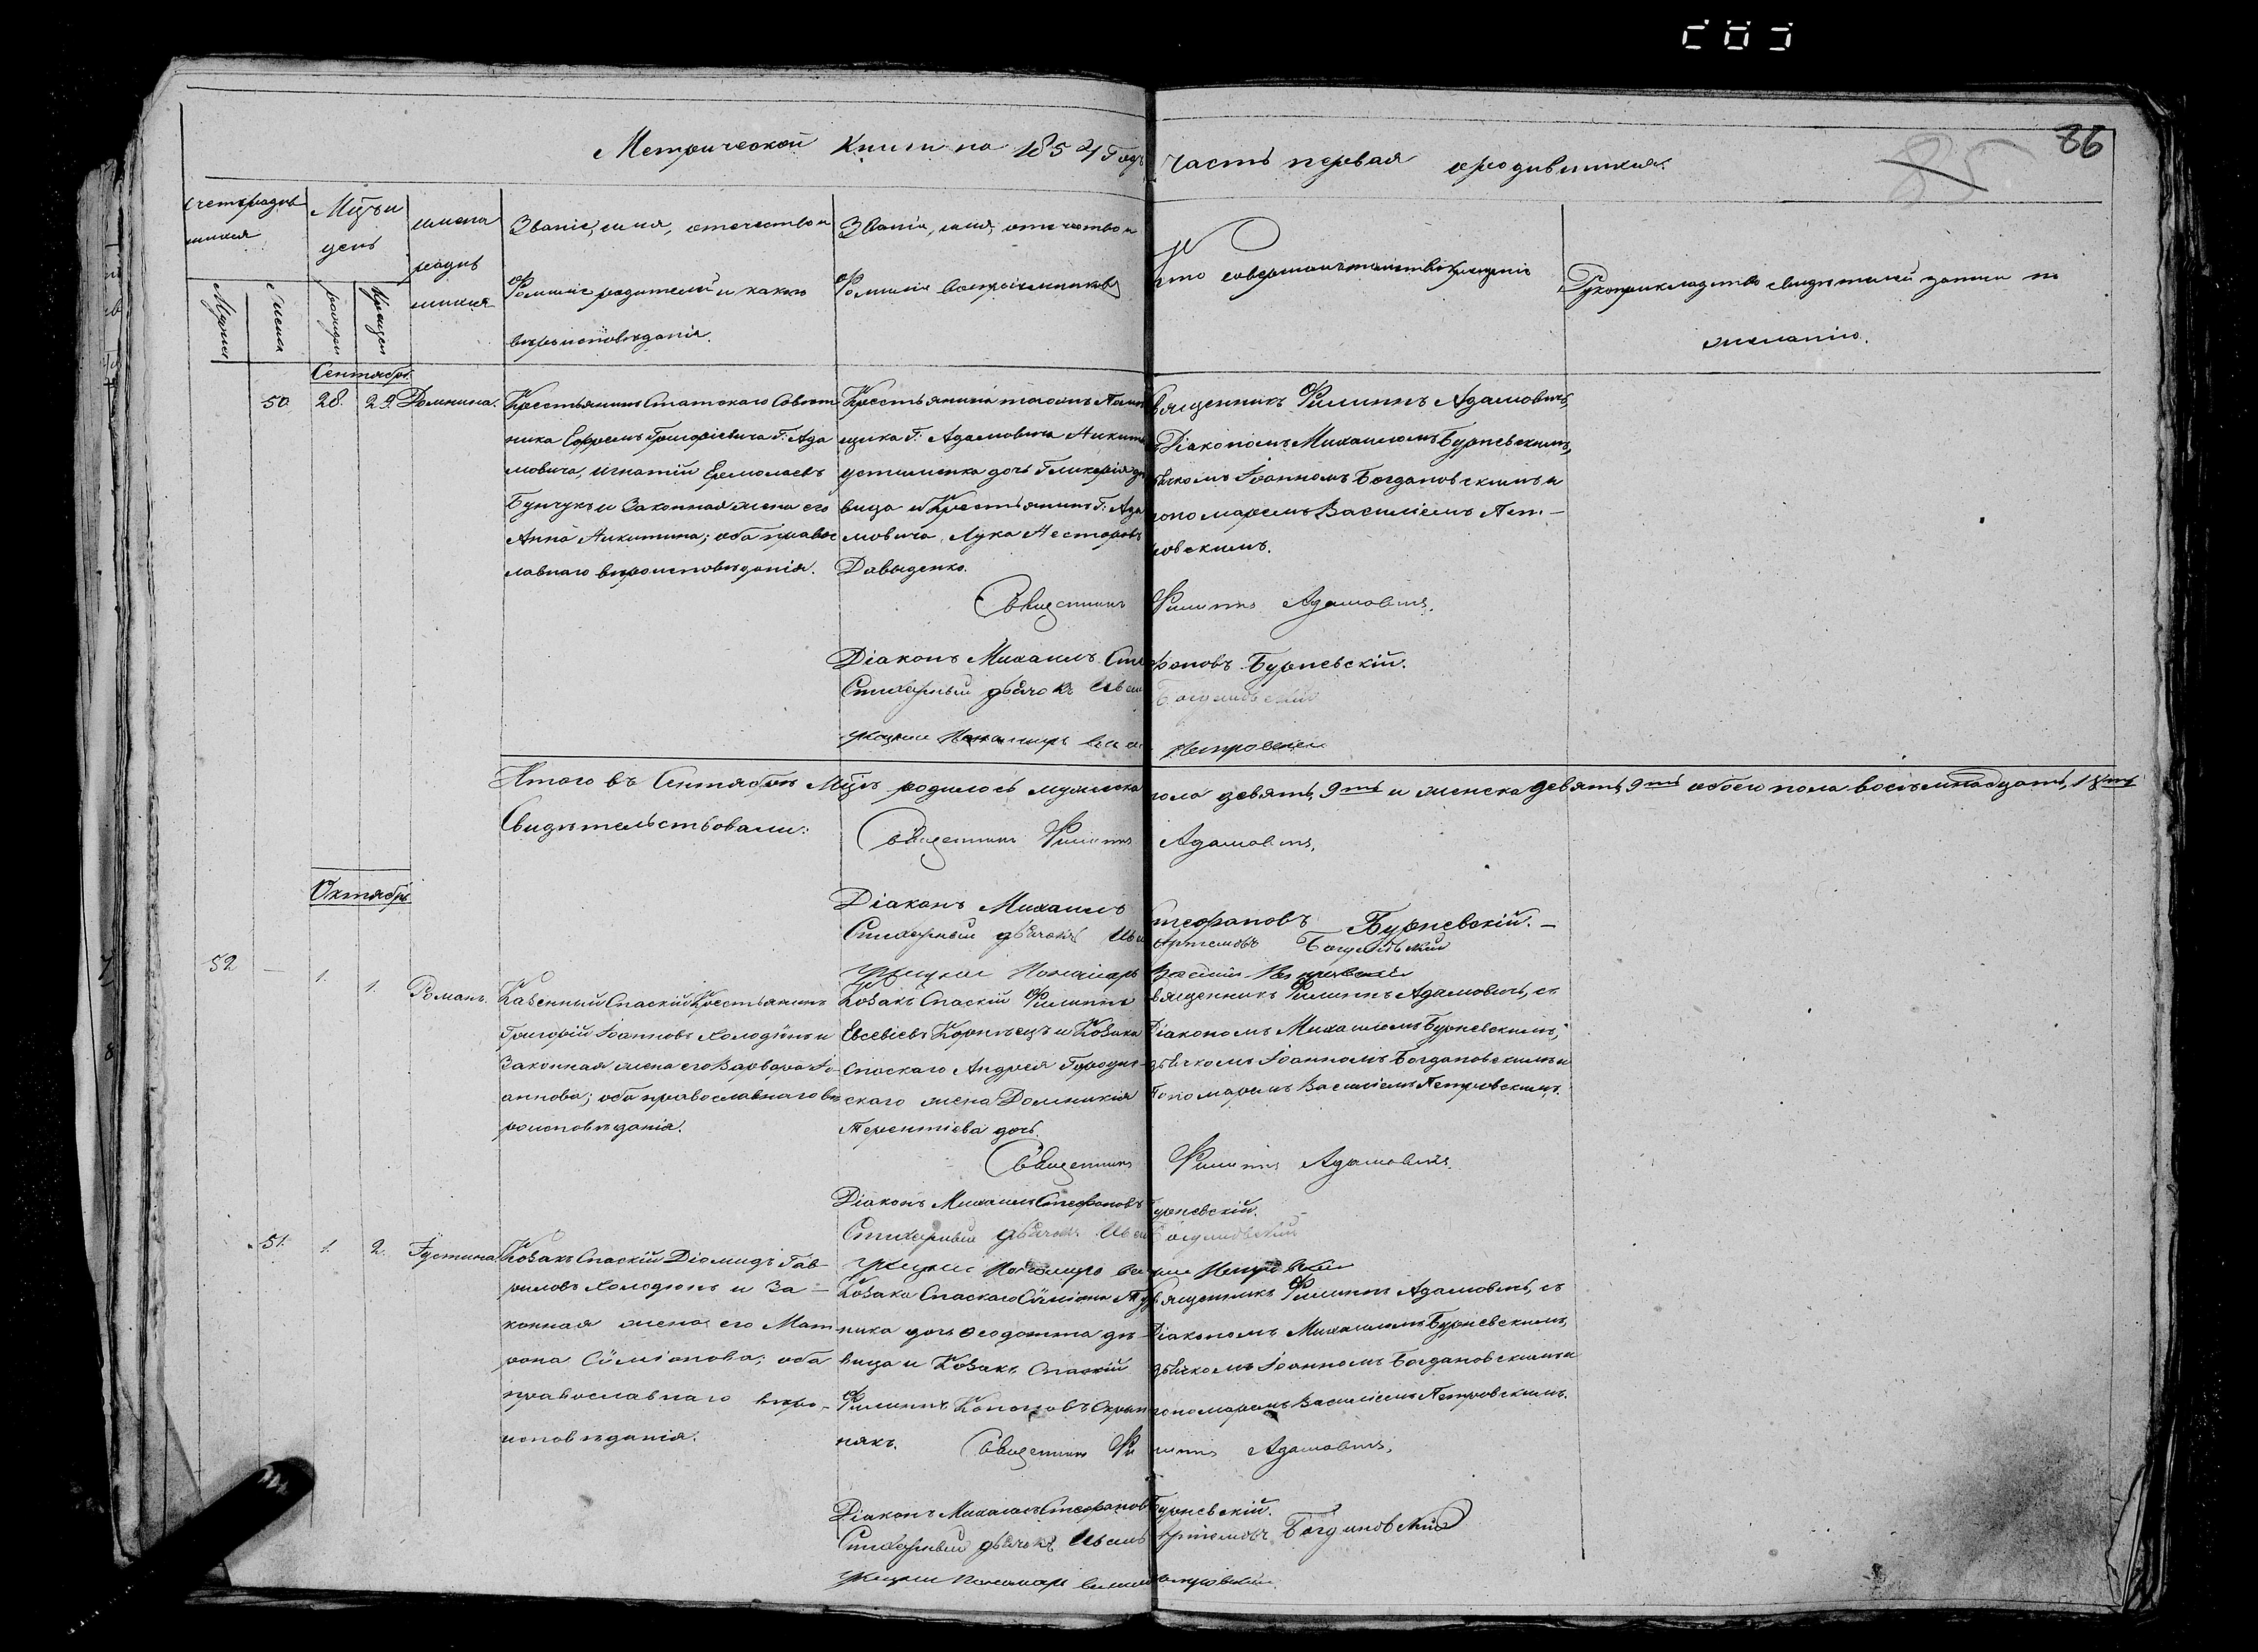 86
85
Метрической Книги на 1854 Годъ часть первая ородившихся.
Счетъ родив
шихся
Мужска
Женска
Мцъ и
день
рожден
крещен
имена
родив
шихся
Званіе, имя, отчество и
Фамиліе родителей и какого
вѣроисповѣданія.
Званіе, имя, отчество и
Фамиліе Воспріемниковъ
кто совершалъ таинство крещенія
Рукоприкладство свидѣтелей записи по
желанію.
Сентябрь
50. 28. 29. Домнина.
Крестьянинъ Статскаго Совѣт
ника Ефрема Григоріевича Г: Ада
мовича, Игнатій Ермолаевъ
Бунчукъ и Законная жена его
Анна Никитина; оба правос
лавнаго вѣроисповѣданія.
Крестьянина тогожъ Помѣ
щика Г: Адамовича Никиты
устименка дочь Гликерія дѣ
вица и Крестьянинъ Г: Ада
мовича, Лука Несторовъ
Давыденко.
Священникъ Филиппъ Адамовичъ,
Діакономъ Михаиломъ Бурневскимъ,
дьячкомъ Іоанномъ Богдановскимъ и
пономаремъ Василіемъ Пет-
ровскимъ.
Священникъ Филиппъ Адамовичъ.
Діаконъ Михаилъ Стефановъ Бурневскій.
Стихарный дьячокъ Иванъ Богдановский
Пономарь Петровский
Итого въ Сентябрѣ Мцѣ родилось мужеска пола девять, 9ть и женска девять, 9ть обоего пола восемьнадцать, 18ть
Свидѣтельствовали:
Священникъ Филиппъ Адамовичъ.
Октябрь
Діаконъ Михаилъ Стефановъ Бурневскій. —
Стихарный дьячокъ Иванъ Артемовъ Богдановский
Пономарь Василий Петровский
52 — 1. 1. Романъ.
Казенный Спаскій Крестьянинъ
Григорій Іоанновъ Холодюнъ и
Законная жена его Варвара Іо-
аннова; оба православнаго вѣ
роисповѣданія.
Козакъ Спаскій Филиппъ
Евсевіевъ Корнѣецъ и Козака
Спаскаго Андрея Городис-
скаго жена Домникія
Терентіева дочь.
Священникъ Филиппъ Адамовичъ, съ
Діакономъ Михаиломъ Бурневскимъ,
дьячкомъ Іоанномъ Богдановскимъ и
Пономаремъ Василіемъ Петровскимъ.
Священникъ Филиппъ Адамовичъ.
Діаконъ Михаилъ Стефановъ Бурневскій.
Стихарный дьячокъ Иванъ Богдановский
Пономарь Петровский
51. 1. 2. Іустина
Козакъ Спаскій Діомидъ Гав-
риловъ Холодюнъ и За-
конная жена его Мат
рона Сѵміонова; оба
православнаго вѣро-
исповѣданія.
Козака Спаскаго Сѵміона
ника дочь Феодотта дѣ-
вица и Козакъ Спаскій
Филиппъ Кононовъ
някъ.
Священникъ Филиппъ Адамовичъ, съ
Діакономъ Михаиломъ Бурневскимъ,
дьячкомъ Іоанномъ Богдановскимъ и
пономаремъ Василіемъ Петровскимъ.
Священникъ Филиппъ Адамовичъ.
Діаконъ Михаилъ Стефановъ Бурневскій.
Стихарный дьячокъ Иванъ Артемовъ Богдановский
Пономарь Петровский.